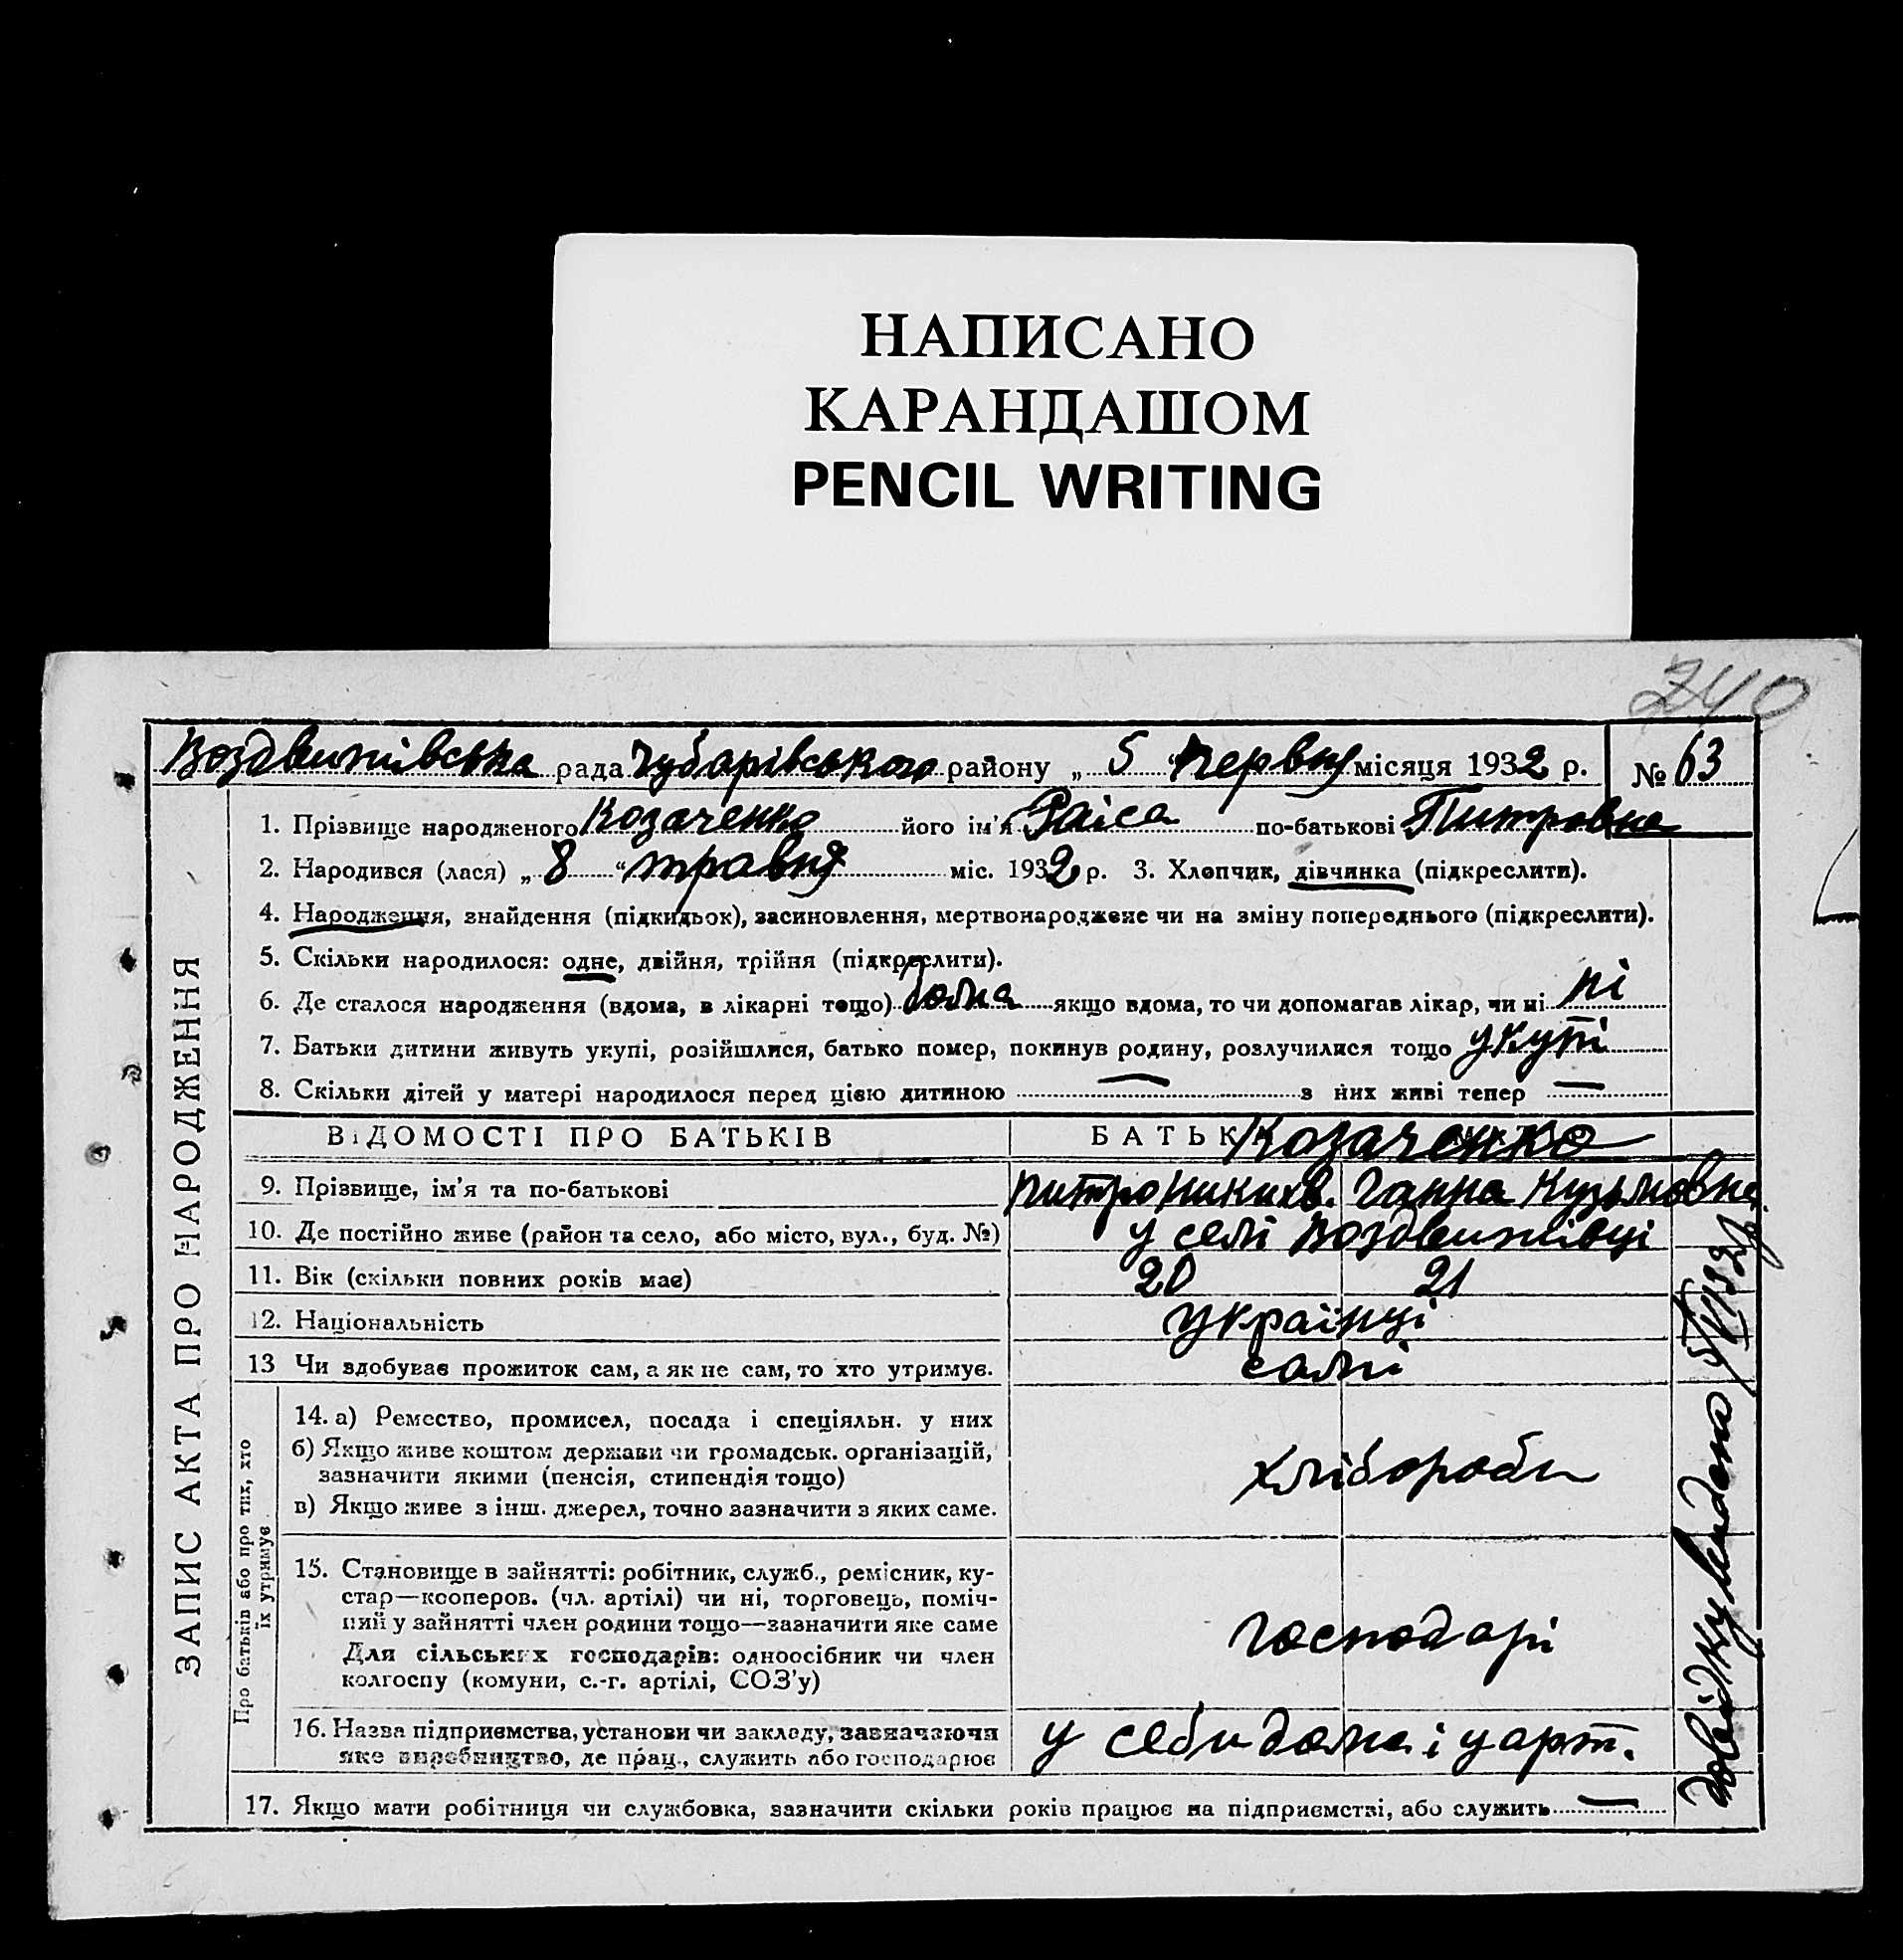 НАПИСАНО
КАРАНДАШОМ
PENCIL WRITING
240
Воздвижівська рада Чубарівського району „ 5 “ Червня місяця 1932 р. № 63
ЗАПИС АКТА ПРО НАРОДЖЕННЯ
1. Прізвище народженого Козаченко його ім'я Раіса по-батькові Питровна
2. Народився (лася) „ 8 “ травня міс. 1932 р. 3. Хлопчик, дівчинка (підкреслити).
4. Народження, знайдення (підкидьок), засиновлення, мертвонароджене чи на зміну попереднього (підкреслити).
5. Скільки народилося: одне, двійня, трійня (підкреслити).
6. Де сталося народження (вдома, в лікарні тощо) дома якщо вдома, то чи допомагав лікар, чи ні ні
7. Батьки дитини живуть укупі, розійшлися, батько помер, покинув родину, розлучилися тощо укупі
8. Скільки дітей у матері народилося перед цією дитиною — з них живі тепер —
ВІДОМОСТІ ПРО БАТЬКІВ БАТЬК Козаченко
9. Прізвище, ім'я та по-батькові Питро Никихв. Ганна Кузьмовна
10. Де постійно живе (район та село, або місто, вул., буд. №) у селі Воздвижівці
11. Вік (скільки повних років має) 20 21
12. Національність українці
13 Чи здобуває прожиток сам, а як не сам, то хто утримує. самі
Про батьків або про тих, хто
їх утримує.
14. а) Ремество, промисел, посада і спеціяльн. у них
б) Якщо живе коштом держави чи громадськ. організацій,
зазначити якими (пенсія, стипендія тощо)
в) Якщо живе з інш. джерел, точно зазначити з яких саме.
хлібороби
15. Становище в зайнятті: робітник, служб., ремісник, ку-
стар—кооперов. (чл. артілі) чи ні, торговець, поміч-
ний у зайнятті член родини тощо—зазначити яке саме
Для сільських господарів: одноосібник чи член
колгоспу (комуни, с.-г. артілі, СОЗ'у)
господарі
16. Назва підприємства, установи чи закладу, зазначаючи
яке виробництво, де прац., служить або господарює
у себи дома і у арт.
17. Якщо мати робітниця чи службовка, зазначити скільки років працює на підприємстві, або служить —
довідку видано 5/VI 32 р.